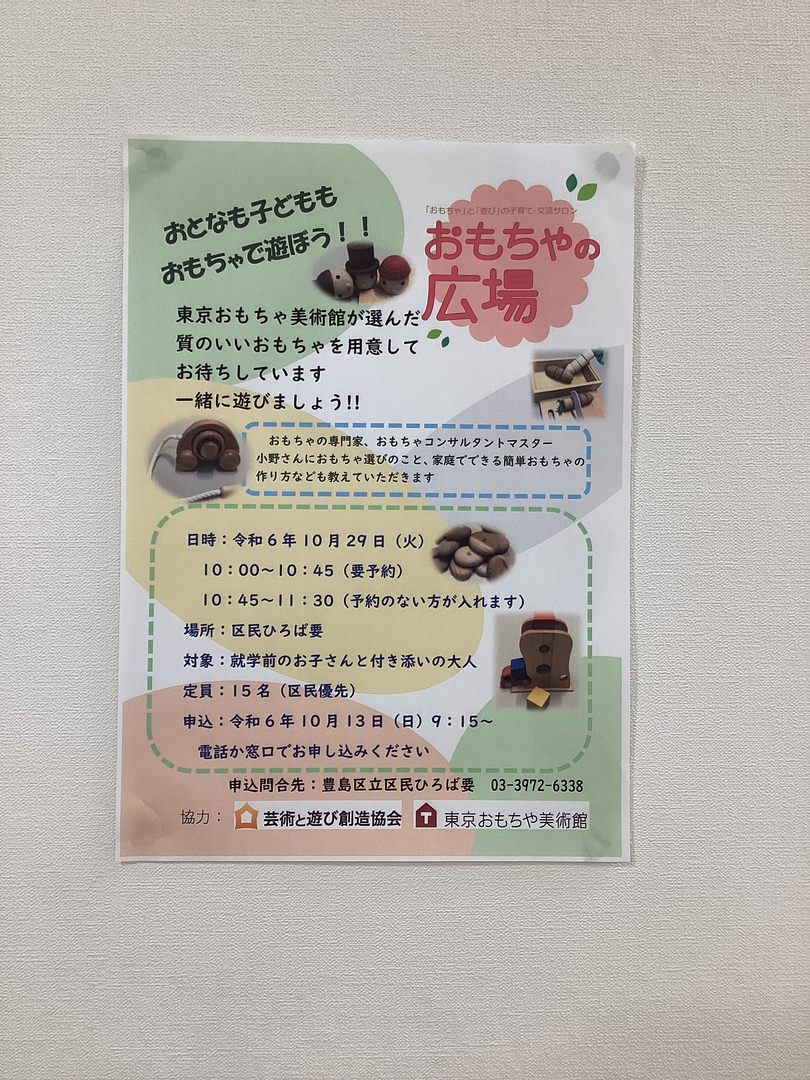 おとなも子どもも
おもちゃで遊ぼう！！
「おもちゃ」と「遊び」の子育て・交流サロン
おもちゃの
広場
東京おもちゃ美術館が選んだ
質のいいおもちゃを用意して
お待ちしています
一緒に遊びましょう!!
おもちゃの専門家、おもちゃコンサルタントマスター
小野さんにおもちゃ選びのこと、家庭でできる簡単おもちゃの
作り方なども教えていただきます
日時：令和6年10月29日（火）
10：00～10：45（要予約）
10：45～11：30（予約のない方が入れます）
場所：区民ひろば要
対象：就学前のお子さんと付き添いの大人
定員：15名（区民優先）
申込：令和6年10月13日（日）9：15～
電話か窓口でお申し込みください
申込問合先：豊島区立区民ひろば要　03-3972-6338
協力：　芸術と遊び創造協会　T 東京おもちゃ美術館